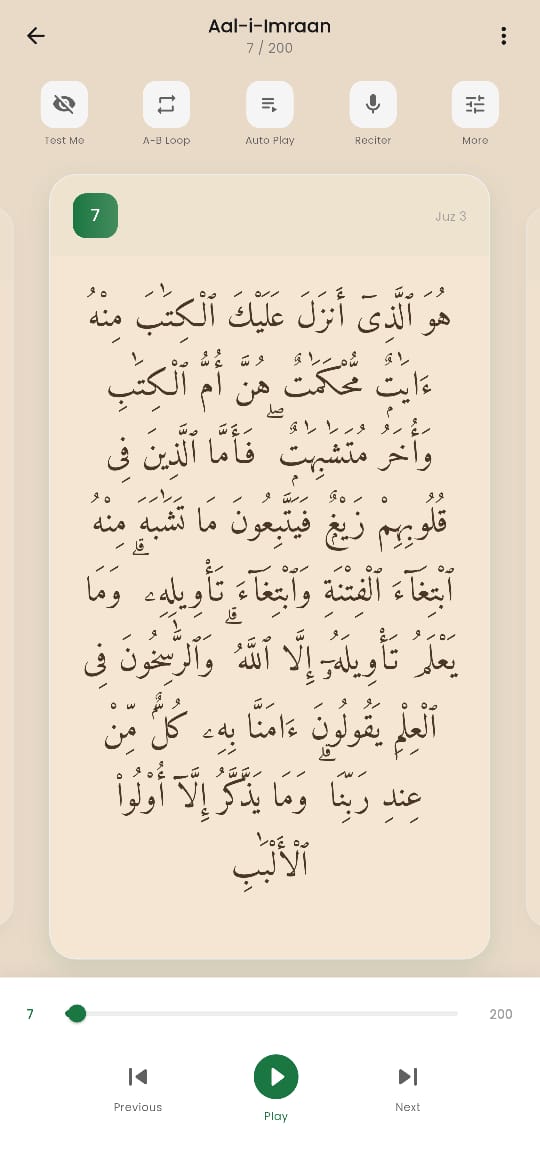 Aal-i-Imraan
7 / 200
Test Me
A-B Loop
Auto Play
Reciter
More
7
Juz 3
هُوَ ٱلَّذِىٓ أَنزَلَ عَلَيْكَ ٱلْكِتَٰبَ مِنْهُ
ءَايَٰتٌ مُّحْكَمَٰتٌ هُنَّ أُمُّ ٱلْكِتَٰبِ
وَأُخَرُ مُتَشَٰبِهَٰتٌ ۖ فَأَمَّا ٱلَّذِينَ فِى
قُلُوبِهِمْ زَيْغٌ فَيَتَّبِعُونَ مَا تَشَٰبَهَ مِنْهُ
ٱبْتِغَآءَ ٱلْفِتْنَةِ وَٱبْتِغَآءَ تَأْوِيلِهِۦ ۗ وَمَا
يَعْلَمُ تَأْوِيلَهُۥٓ إِلَّا ٱللَّهُ ۗ وَٱلرَّٰسِخُونَ فِى
ٱلْعِلْمِ يَقُولُونَ ءَامَنَّا بِهِۦ كُلٌّ مِّنْ
عِندِ رَبِّنَا ۗ وَمَا يَذَّكَّرُ إِلَّآ أُو۟لُوا۟
ٱلْأَلْبَٰبِ
7
200
Previous
Play
Next